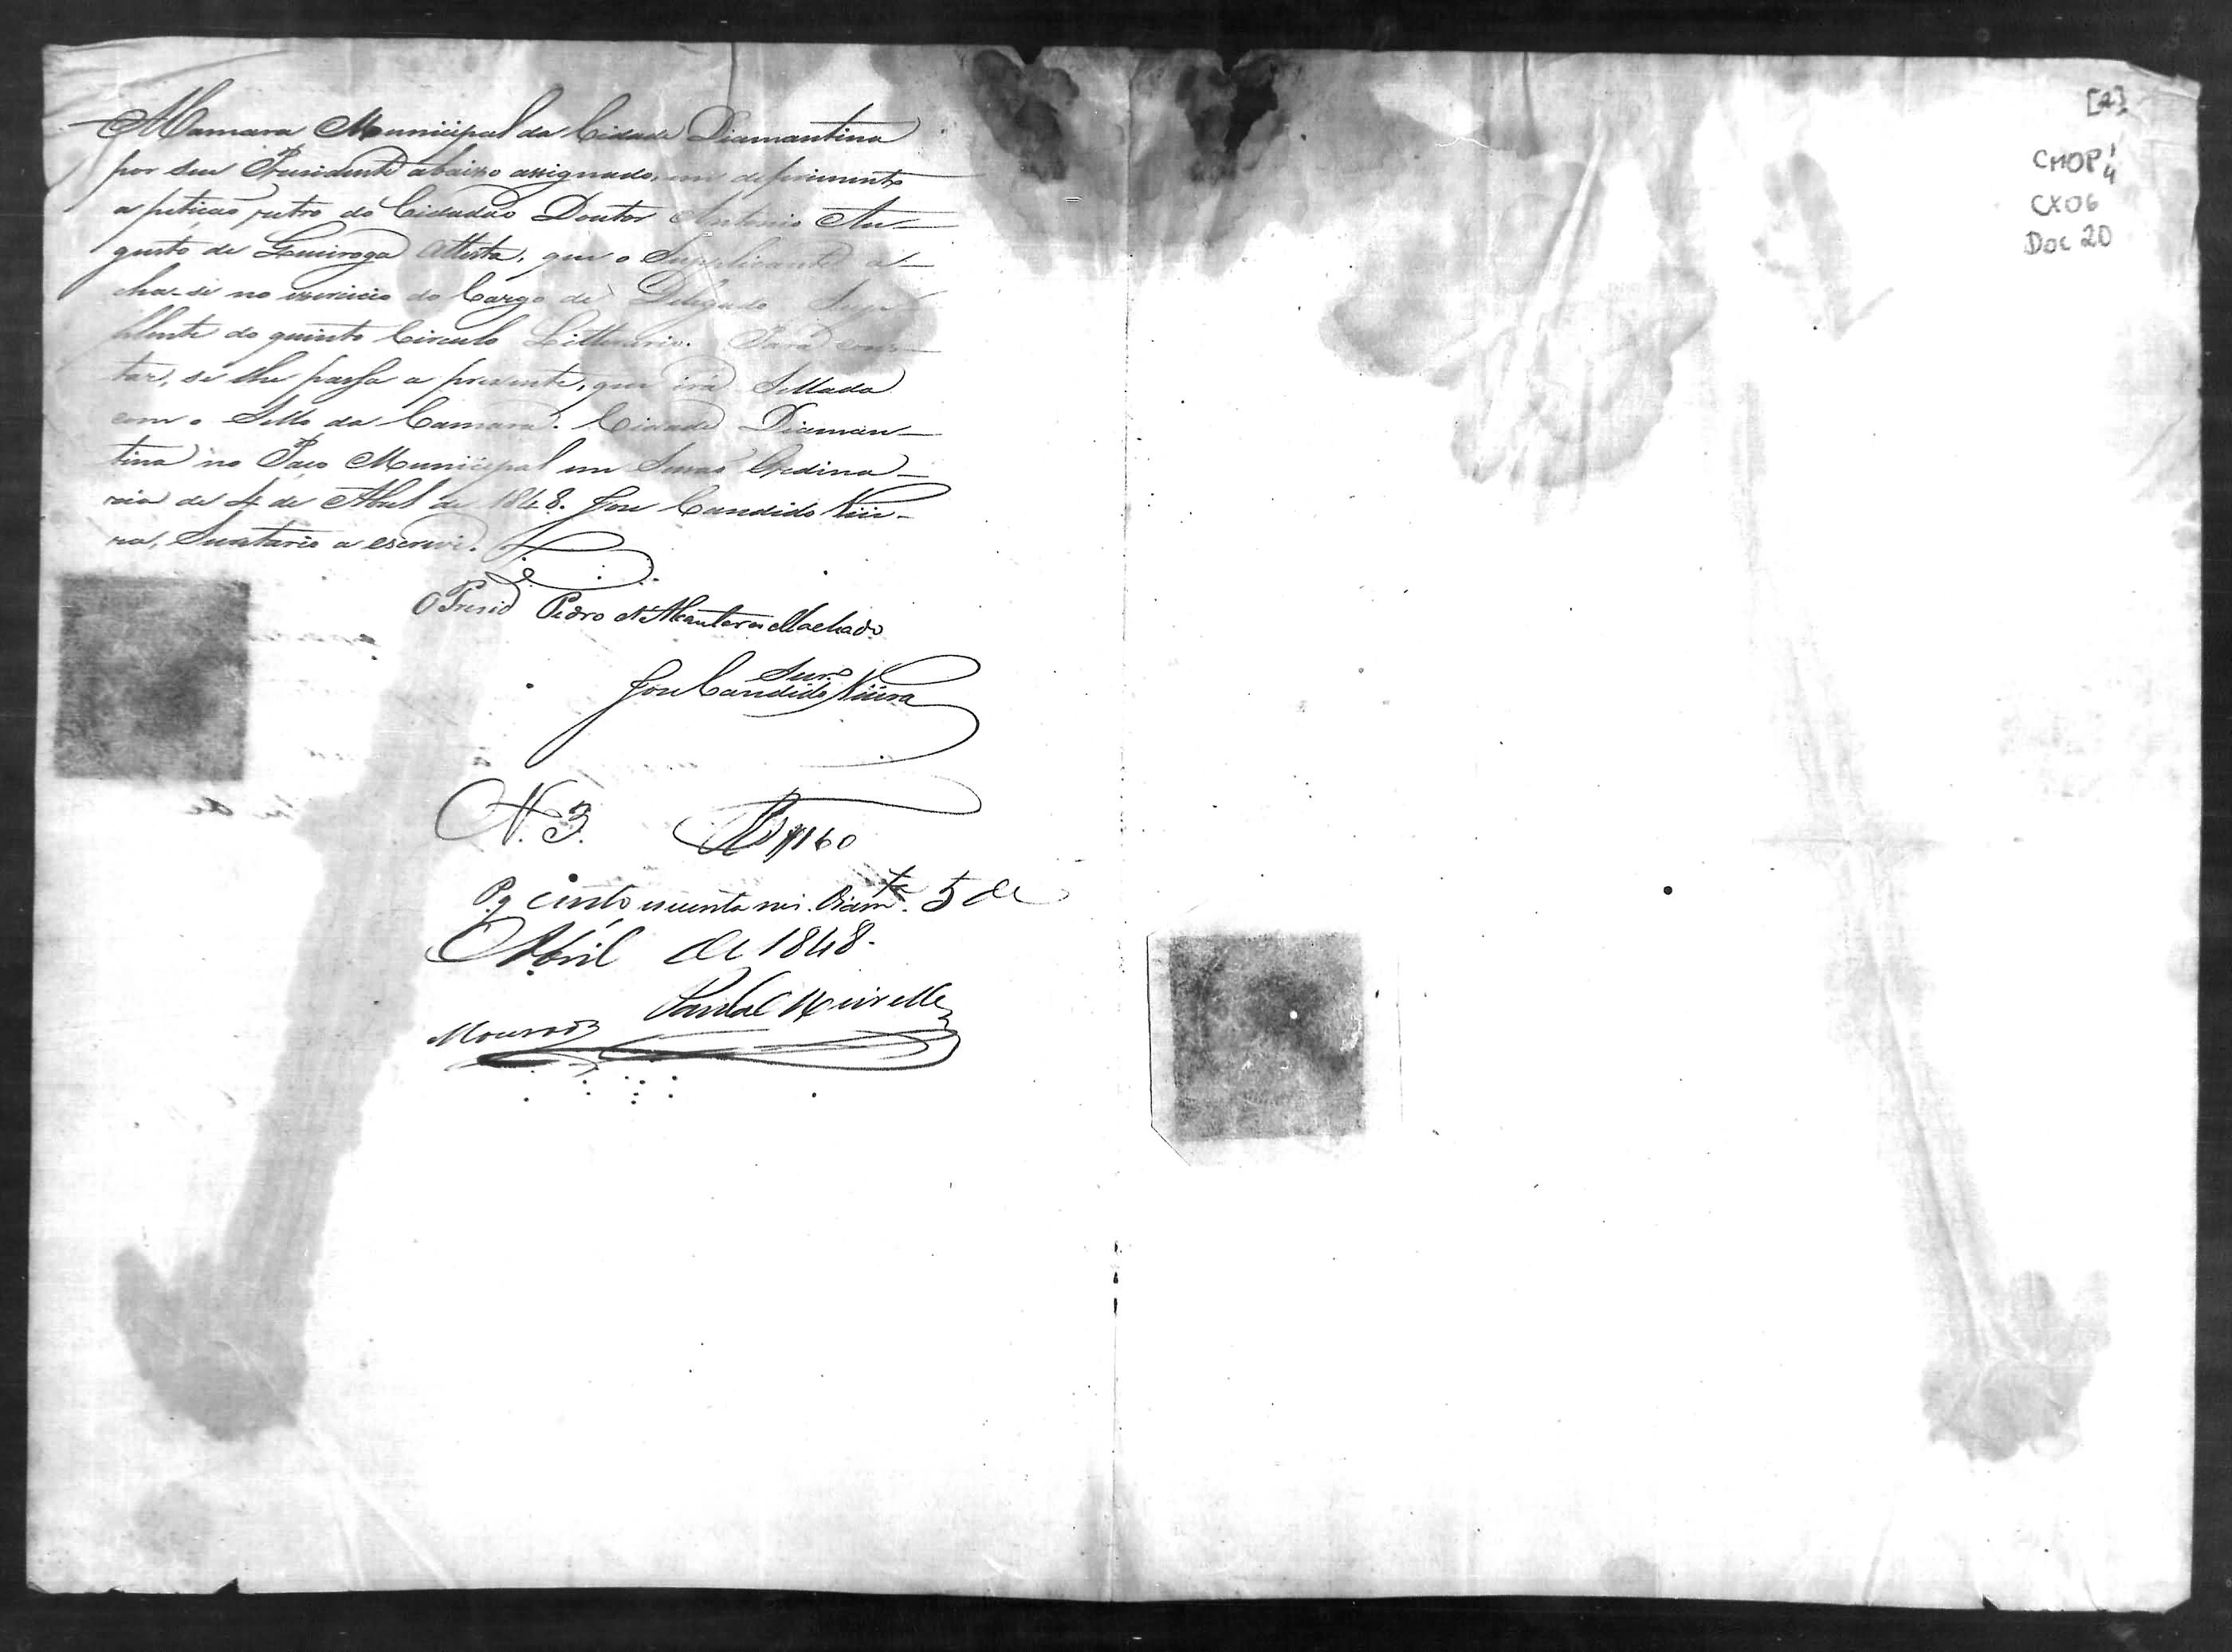 A Camara Municipal da Cidade Diamantina
por seu Presidente abaixo assignado, em deferimento
a petição retro do Cidadão Doutor Antonio Au-
gusto de Queiroga Attesta, que o Supplicante a-
cha-se no exercicio do Cargo de Delegado Sup-
plente do quinto Circulo Litterario. Para cons-
tar, se lhe passa a presente, que irá Sellada
com o Sello da Camara. Cidade Diaman-
tina no Paço Municipal em Sessão Ordina-
ria de 4 de Abril de 1848. José Candido Vieira-
ra, Secretario a escrevi.
O Presid Pedro d'Alcantara Machado
Secro
José Candido Vieira
N. 3. Rs 160
Pg cento secenta reis. Diamta. 5 de
Abril de 1848.
Meirelles
[2]
CMOP 1/4
CX06
Doc 20